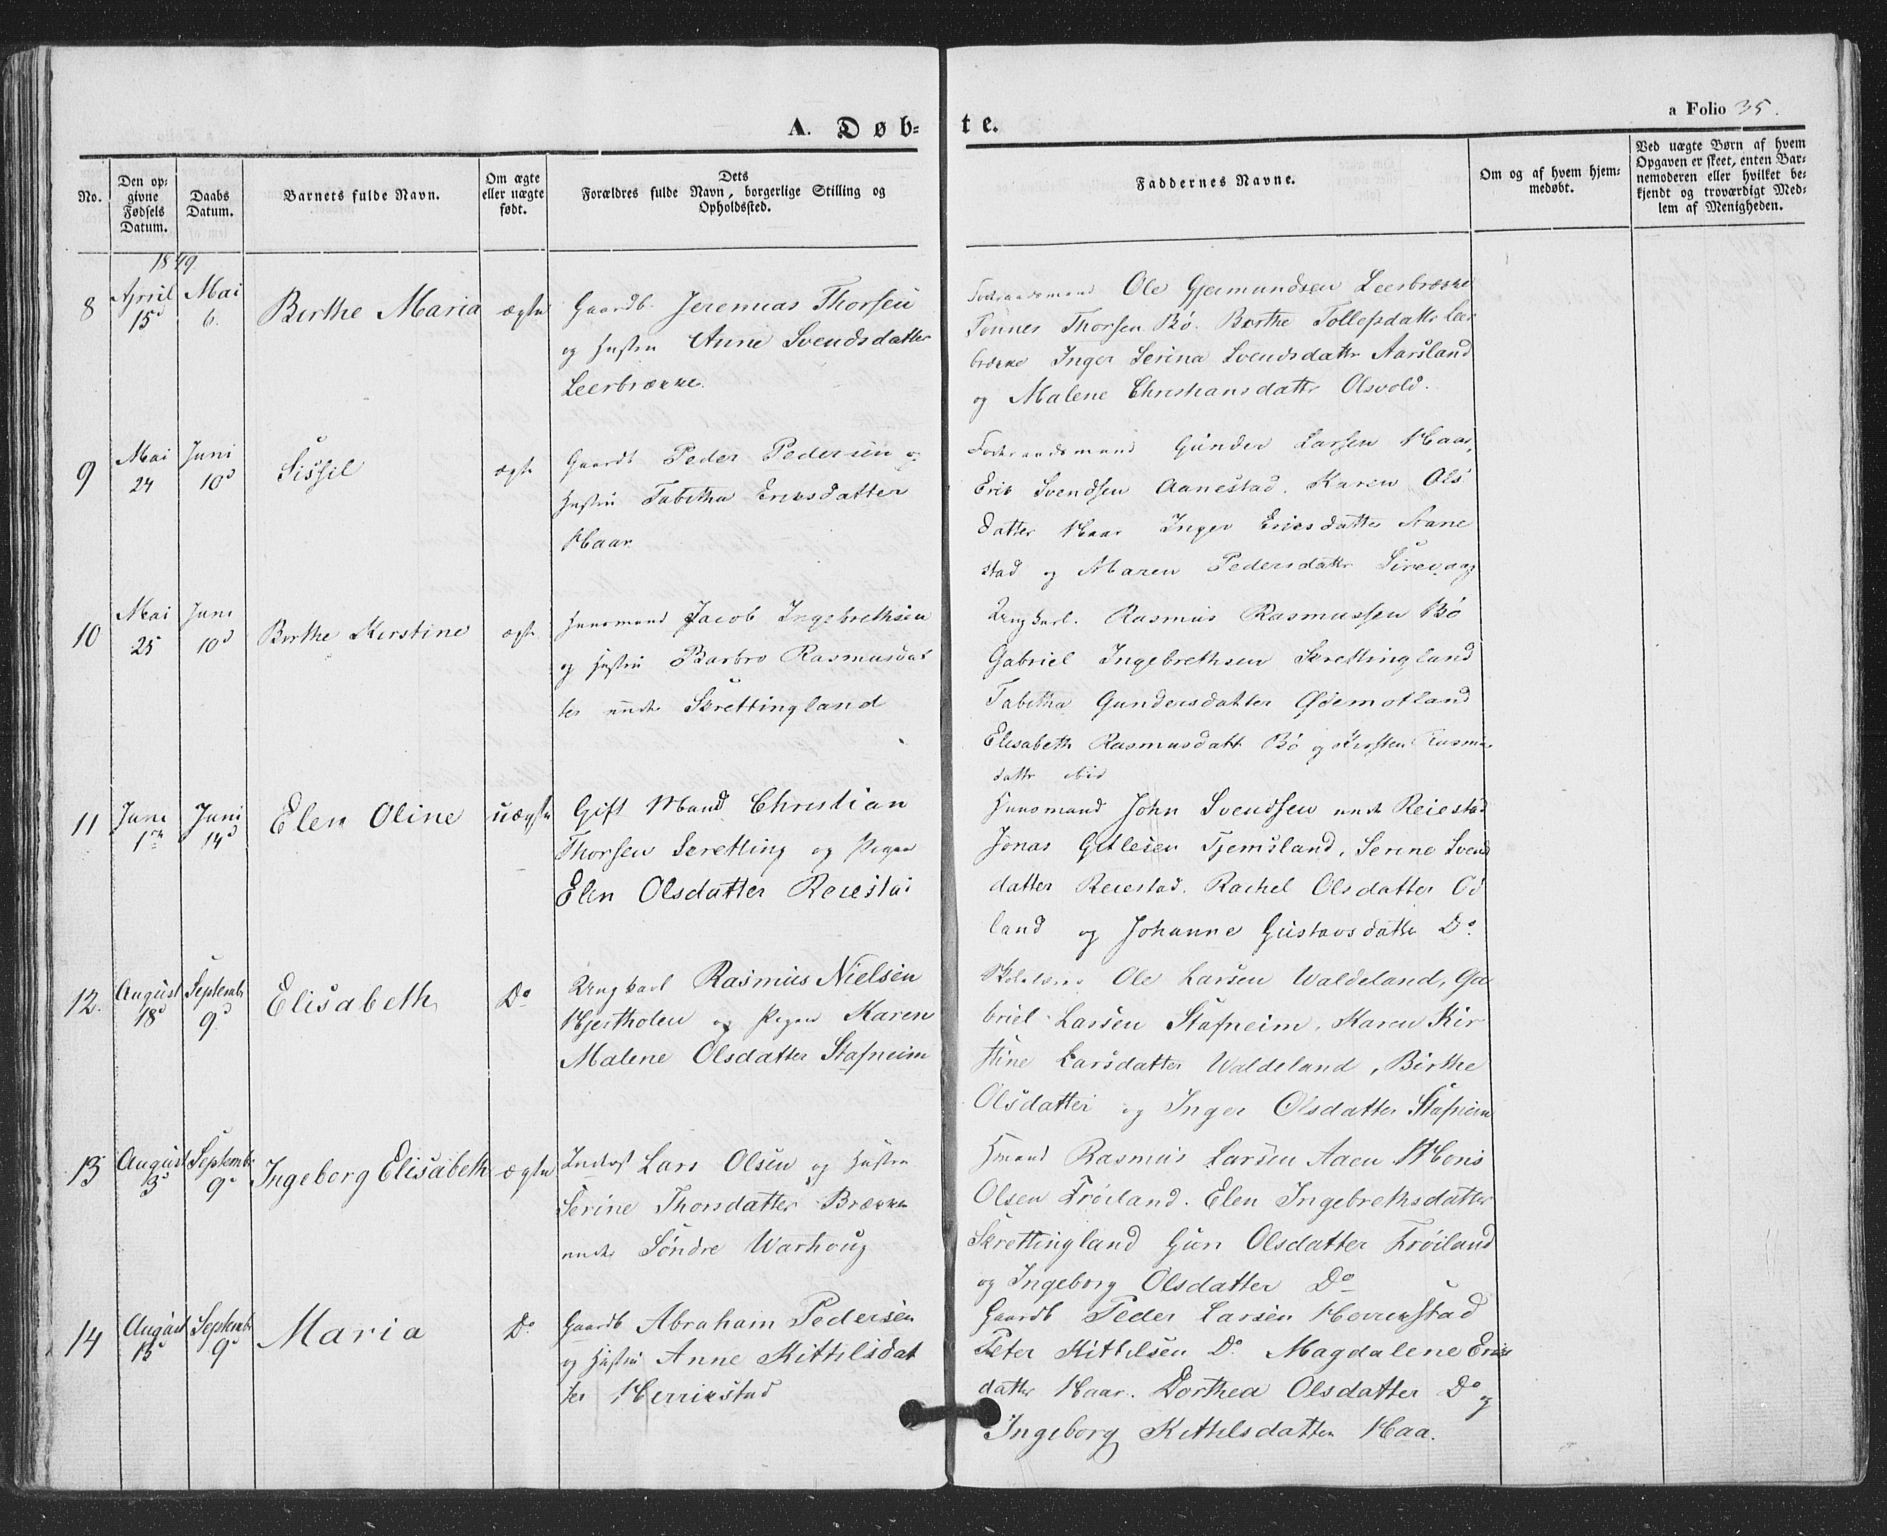 a Folio 35.
A. Døb-te.
No.
Den op-
givne
Fødsels
Datum.
Daabs
Datum.
Barnets fulde Navn.
Om ægte
eller uægte
født.
Dets
Forældres fulde Navn, borgerlige Stilling og
Opholdssted.
Faddernes Navne.
Om og af hvem hjem-
medøbt.
Ved uægte Børn af hvem
Opgaven er skeet, enten Bar-
nemoderen eller hvilket be-
kjendt og troværdigt Med-
lem af Menigheden.
1849
8
April
15d
Mai
6.
Birthe Maria
ægte
Gaardb. Jeremias Thorsen
og Hustru Anne Svendsdatter
Leerbrække
Ole Gjermundsen Leerbrække
Tønnes Thorsen Bø. Berthe Tollefsdattr Leer
brække Inger Serina Svendsdattr Aarsland
og Malene Christiansdattr Olsvold.
9
Mai
24
Juni
10d
Sissil
ægte
Gaardb Peder Pedersen og
Hustru Tabitha Ericsdatter
Haar
Foderaadsmand Gunder Larsen Haar,
Erik Svendsen Aanestad. Karen Ols
datter Haar Inger Ericsdatter Aane
stad og Maren Pedersdattr Sirevaag
10
Mai
25
Juni
10d
Berthe Kirstine
ægte
Huusmand Jacob Ingebrethsen
og Hustru Barbro Rasmusdat
ter under Skrettingland
Ungkarl. Rasmus Rasmussen Bø
Gabriel Ingebrethsen Skrettingland
Tabitha Gundersdatter Ødemotland
Elisabeth Rasmusdatt Bø og Kirsten Rasmus
dattr ibid
11
Juni
1ste
Juni
14d
Elen Oline
uægte
Gift Mand Christian
Thorsen Skretting og Pigen
Elen Olsdatter Reiestad
Huusmand John Svendsen under Reiestad
Jonas Gitlesen Tjemsland, Serine Svend
datter Reiestad. Rachel Olsdatter Od
land og Johanne Gustavsdatter Do.
12.
August
18d
Septembr
9d
Elisabeth
Do
Ungkarl Rasmus Nielsen
Hjertholen og Pigen Karen
Malene Olsdatter Stafneim
Ole Larsen Waldeland, Ga
briel Larsen Stafneim, Karen Kir
stine Larsdatter Waldeland, Birthe
Olsdatter og Inger Olsdatter Stafneim
13
August
3d
Septembr
9d
Ingeborg Elisabeth
ægte
Inderst Lars Olsen og Hustru
Serine Thorsdatter Brække
under Søndre Warhoug
Hmand Rasmus Larsen Aaen Mons
Olsen Frøiland. Elen Ingebrethsdatter
Skrettingland Guri Olsdatter Frøiland
og Ingeborg Olsdatter Do
14
August
15d
Septembr
9d
Maria
Do.
Gaardb Abraham Pedersen
og Hustru Anne Kittilsdat
ter Herrikstad
Gaardb Peder Larsen Herrikstad
Peter Kittilsen Do. Magdalene Erics
datter Haar. Dorthea Olsdatter Do og
Ingeborg Kittilsdatter Haa.